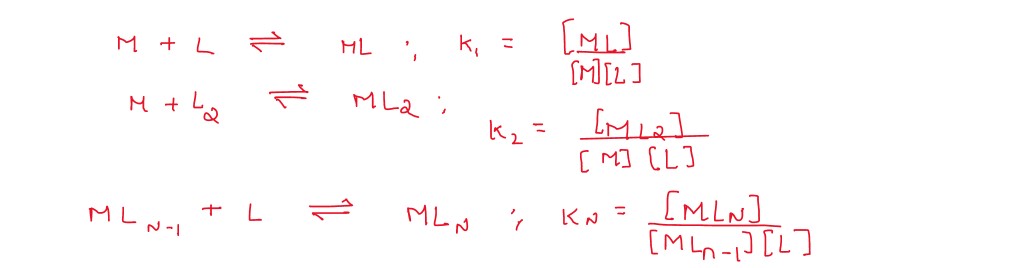 M + L ⇌ ML ; K₁ = [ML] / [M][L]
M + L₂ ⇌ ML₂ ; K₂ = [ML₂] / [M] [L]
ML_{N-1} + L ⇌ ML_N ; K_N = [ML_N] / [ML_{n-1}][L]